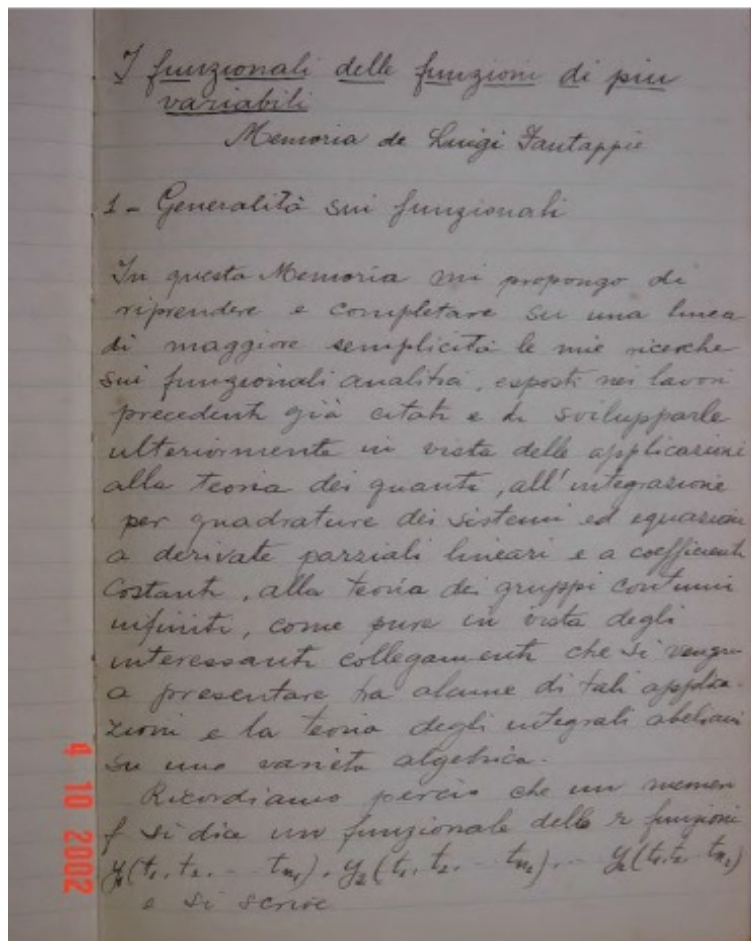 I funzionali delle funzioni di piu
variabili
Memoria de Luigi Fantappie
1 - Generalità sui funzionali
In questa Memoria mi propongo di
riprendere e completare su una linea
di maggiore semplicità le mie ricerche
sui funzionali analitici, esposti nei lavori
precedenti già citati e di svilupparle
ulteriormente in vista delle applicazioni
alla teoria dei quanti, all'integrazione
per quadrature dei sistemi ed equazioni
a derivate parziali lineari e a coefficienti
costanti, alla teoria dei gruppi continui
infiniti, come pure in vista degli
interessanti collegamenti che si vengono
a presentare tra alcune di tali applica-
zioni e la teoria degli integrali abeliani
su una varietà algebrica.
Ricordiamo perciò che un numero
f si dice un funzionale delle r funzioni
y₁(t₁, t₂, -- tₙ₁), y₂(t₁, t₂, -- tₙ₂), -- (t₁, t₂
e si scrive
4 10 2002